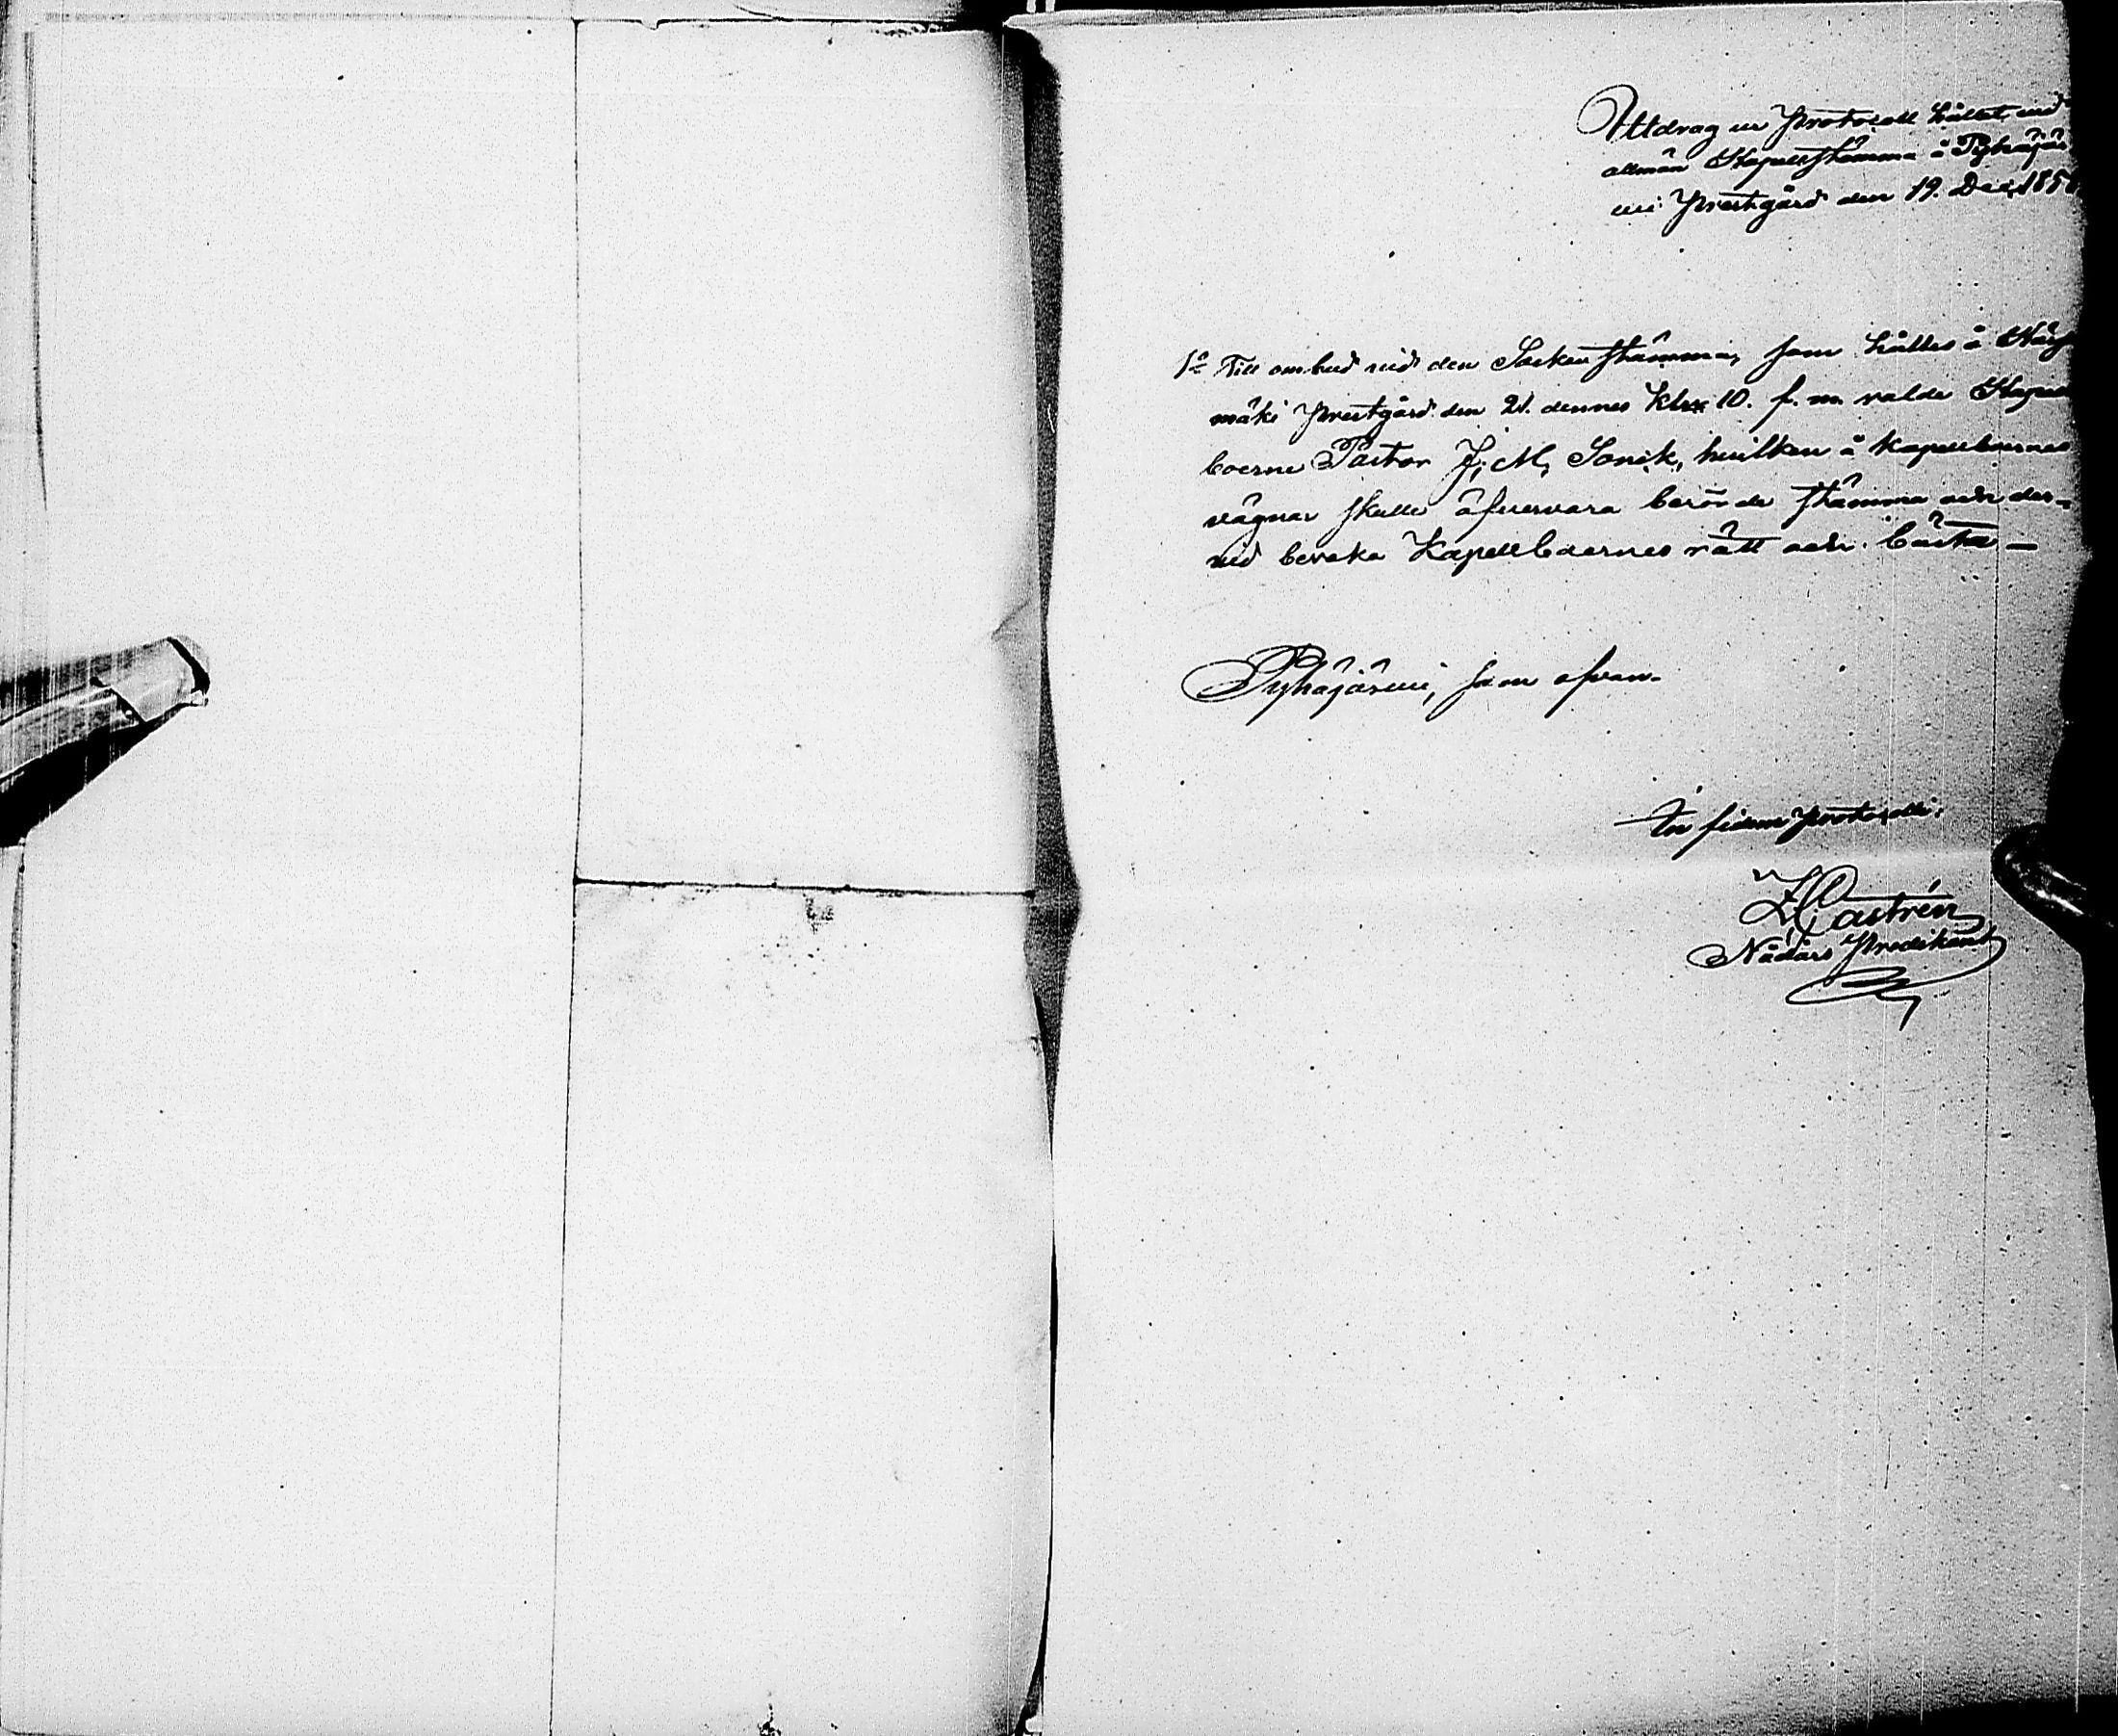 Utdrag ur Protocoll hållet vid
allmän Kapellstämma å Pyhäjär
vi Prestgård den 19. Dec. 185
1º Till ombud vid den Sockenstämma, som hålles å
mäki Prestgård den 21. dennes Klx 10. f. m. valde Kapell
boerne Pastor J. M. Sonck, hvilken å Kapellboernes
vägnar skulle öfvervara berörde stämma och der-
vid bevaka Kapellboernes rätt och bästa —
Pyhäjärvi, som ofvan.
In fidem Protocolli:
Z Castrén
Nådårs Predikant